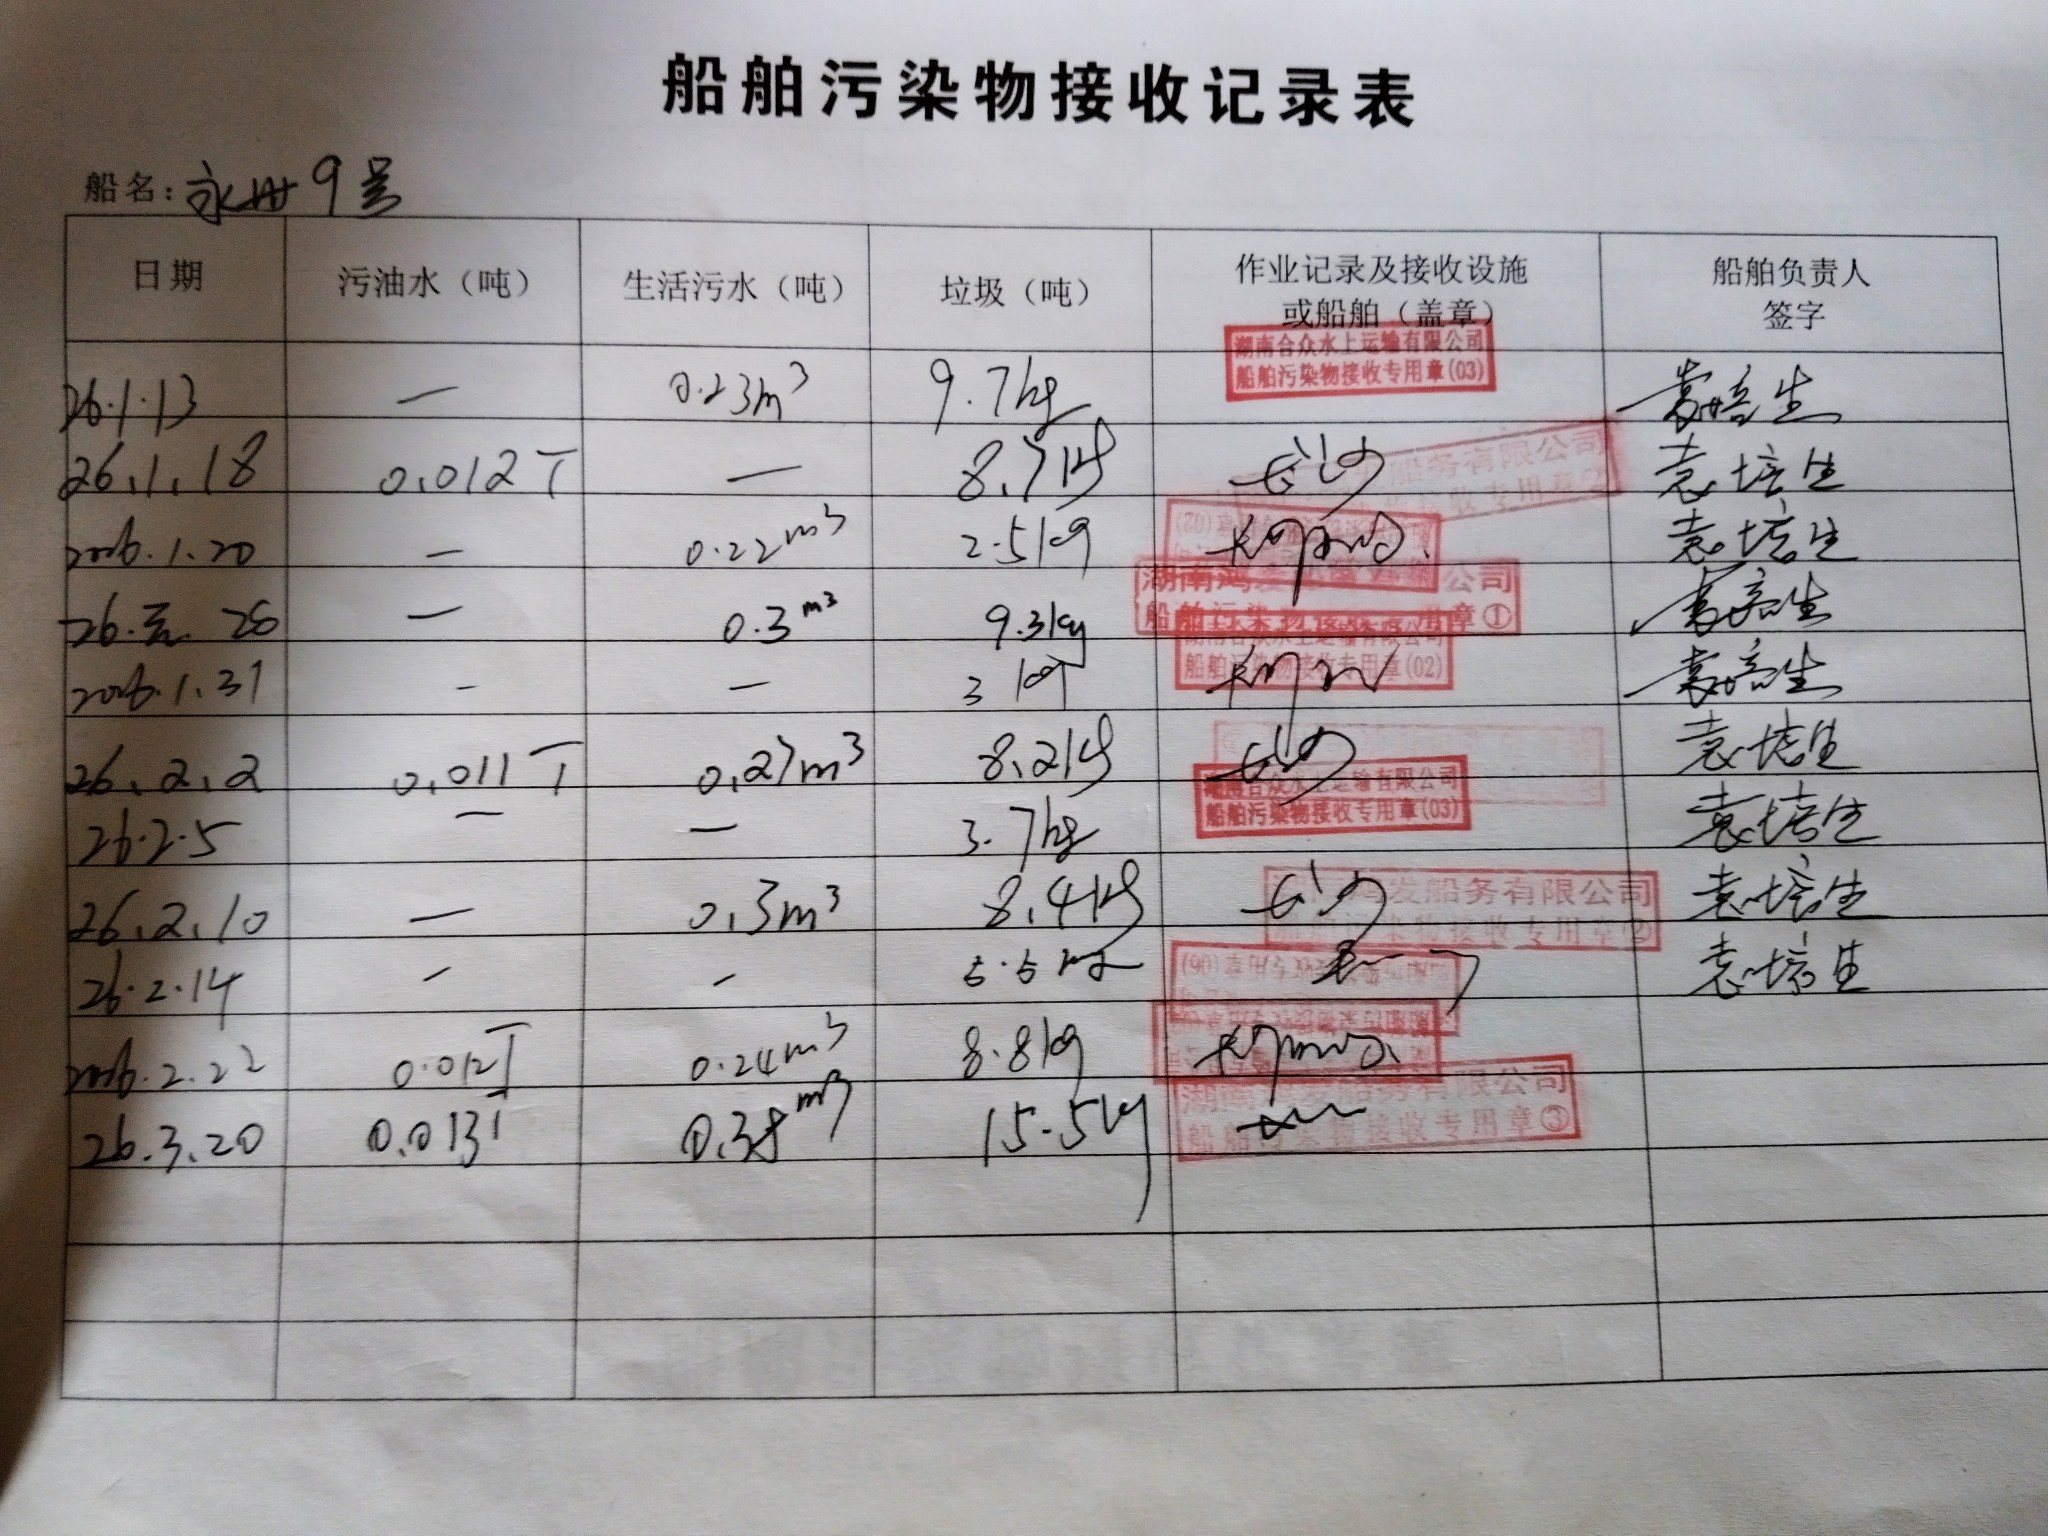 船舶污染物接收记录表
船名: 永州9号
日期 污油水（吨） 生活污水（吨） 垃圾（吨） 作业记录及接收设施或船舶（盖章） 船舶负责人签字
26.1.13 — 0.23m³ 9.7kg 湖南合众水上运输有限公司 船舶污染物接收专用章(03) 袁培生
26.1.18 0.012T — 8.7kg 长沙 船务有限公司 接收专用章② 袁培生
2026.1.20 — 0.22m³ 2.5kg (02) 袁培生
26.元.26 — 0.3m³ 9.3kg 湖南鸿发 公司 船舶污染物接收 用章① 袁培生
2026.1.31 - — 3kg 湖南合众水上运输有限公司 船舶污染物接收专用章(02) 袁培生
26.2.2 0.011T 0.27m³ 8.2kg 长沙 袁培生
26.2.5 — — 3.7kg 湖南合众水上运输有限公司 船舶污染物接收专用章(03) 袁培生
26.2.10 — 0.3m³ 8.4kg 长沙 鸿发船务有限公司 船舶污染物接收专用章② 袁培生
26.2.14 - - 5.5kg 袁培生
2026.2.22 0.012T 0.24m³ 8.8kg
26.3.20 0.013T 0.38m³ 15.5kg 湖南鸿发船务有限公司 船舶污染物接收专用章③